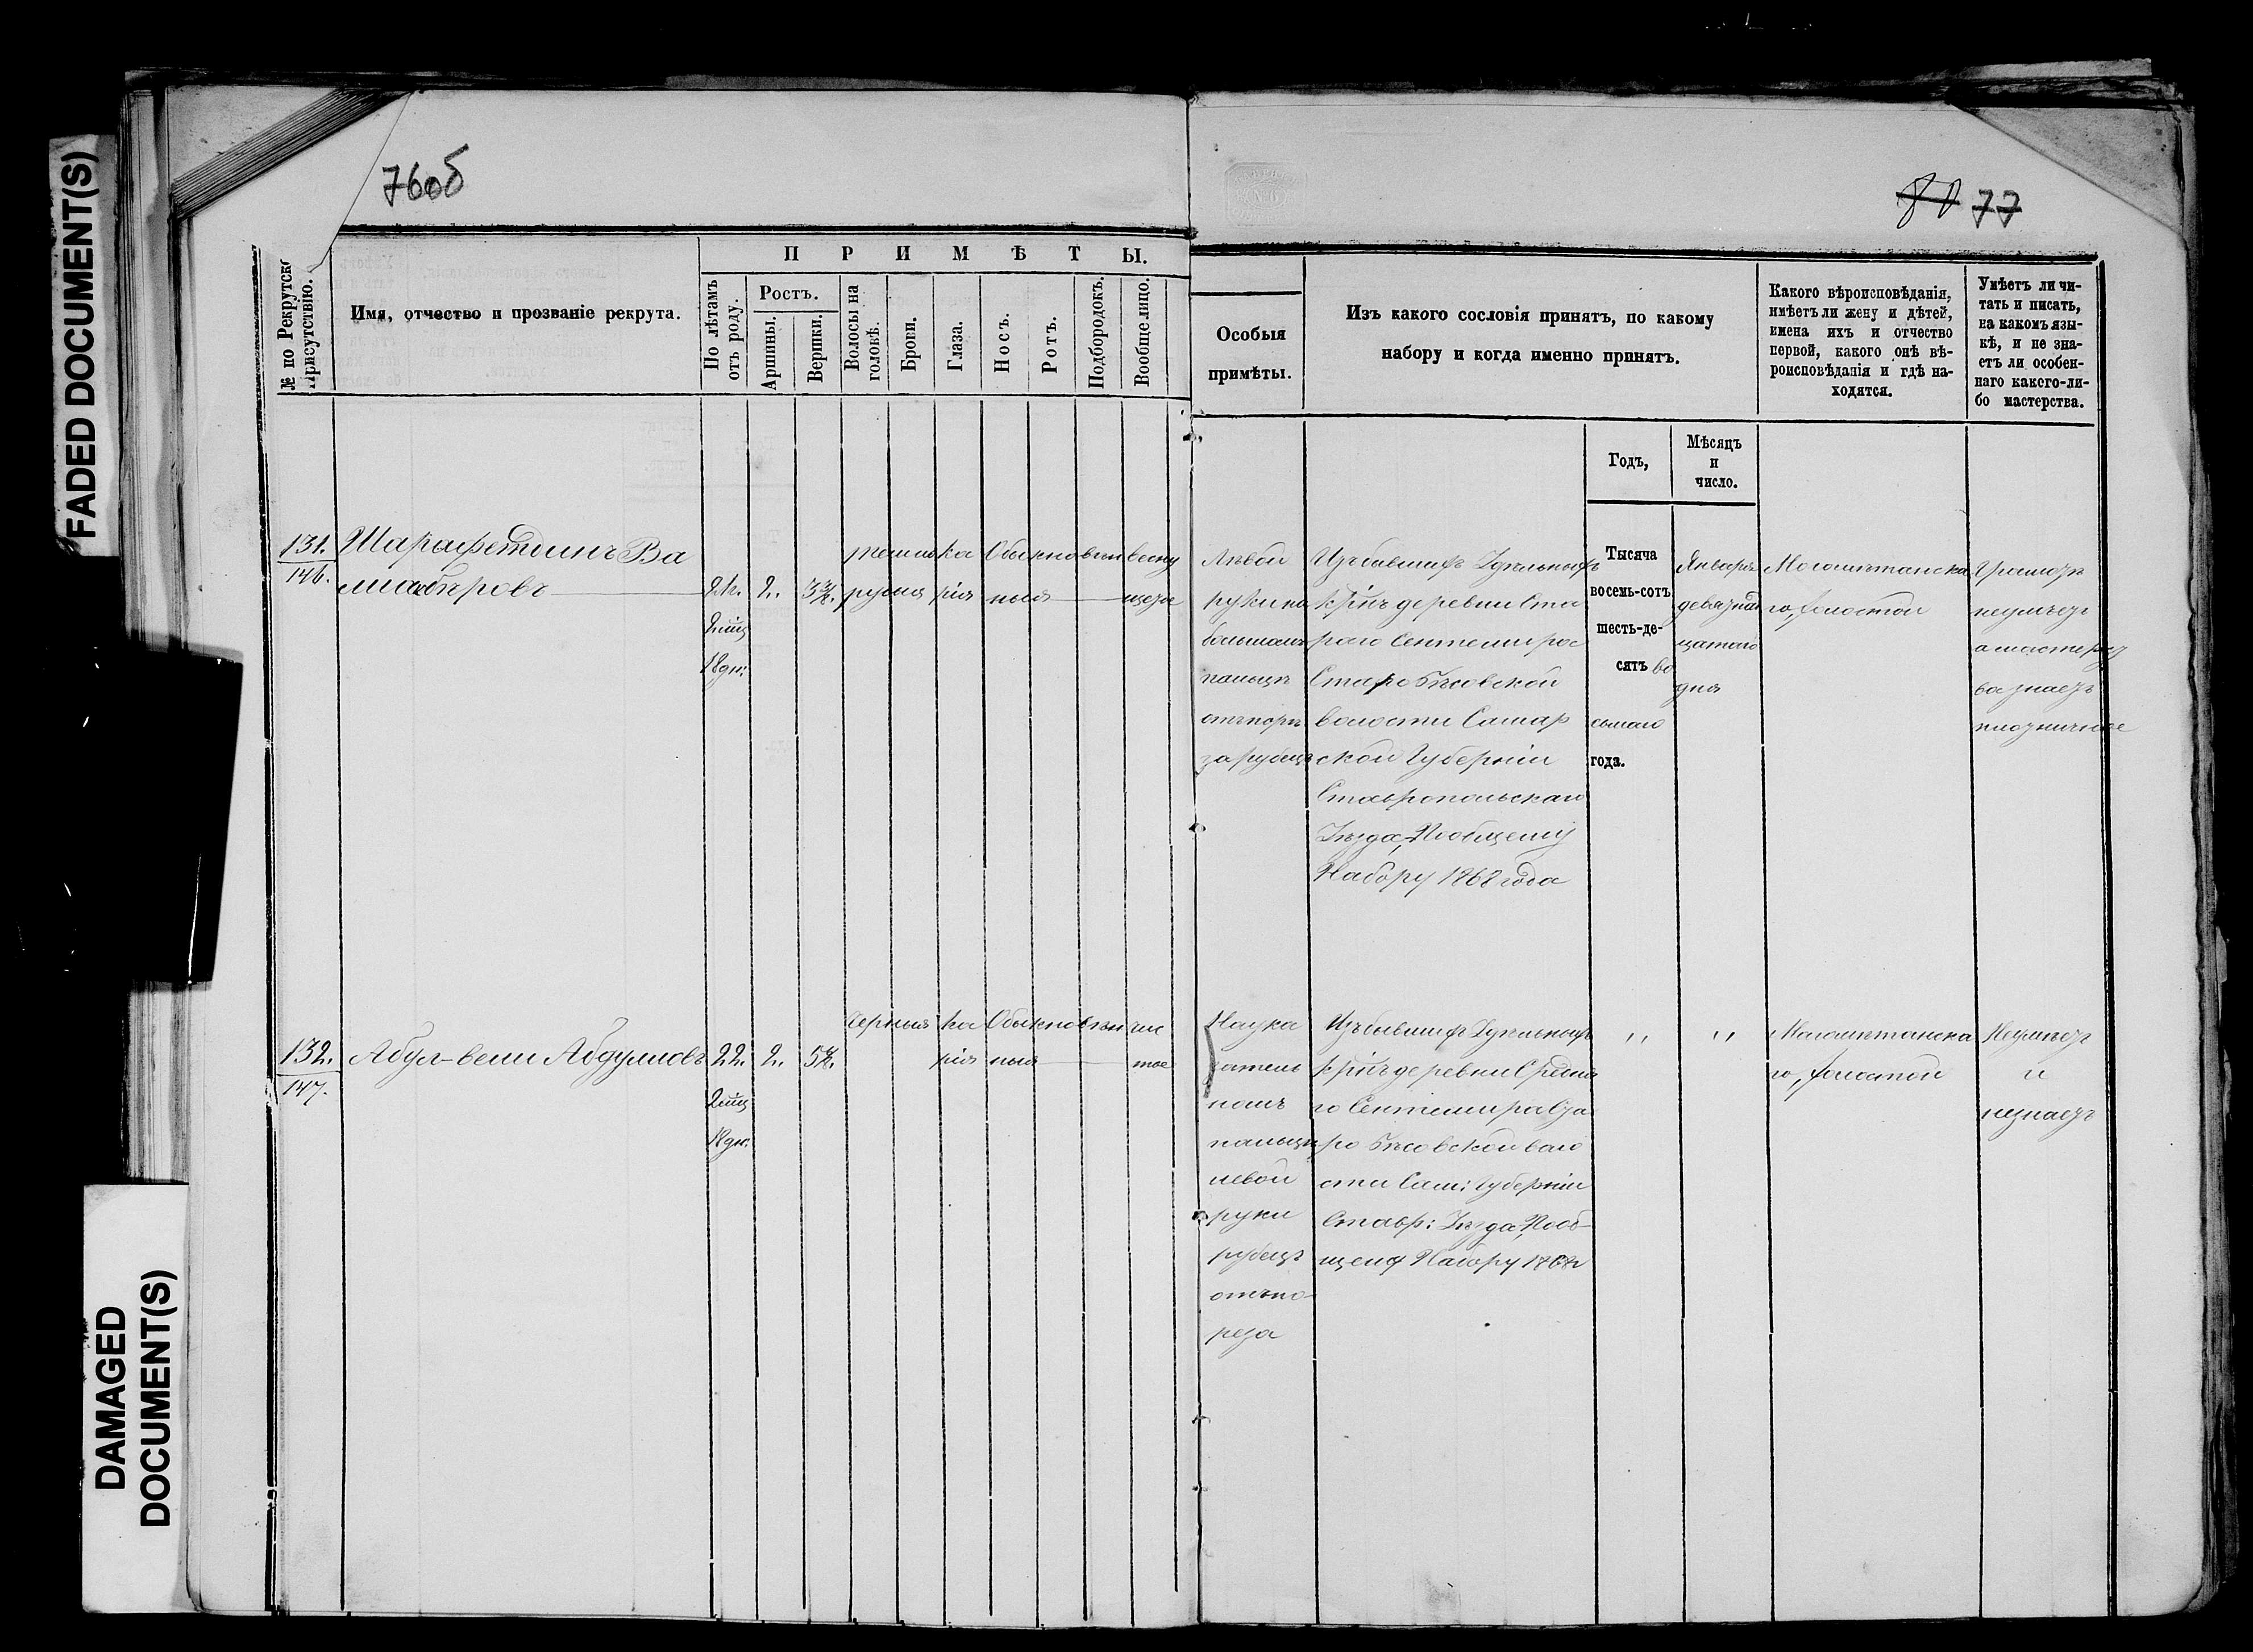 FADED DOCUMENT(S)
DAMAGED
DOCUMENT(S)
76об
77
№ по Рекрутско
Присутствію.
Имя, отчество и прозваніе рекрута.
ПРИМѢТЫ.
По лѣтамъ
отъ роду.
Ростъ.
Аршины.
Вершки.
Волосы на
головѣ.
Брови.
Глаза.
Носъ.
Ротъ.
Подбородокъ.
Вообще лицо.
Особыя
примѣты.
Изъ какого сословія принятъ, по какому
набору и когда именно принятъ.
Какого вѣроисповѣданія,
имѣетъ ли жену и дѣтей,
имена ихъ и отчество
первой, какого онѣ вѣ-
роисповѣданія и гдѣ на-
ходятся.
Умѣетъ ли чи-
тать и писать,
на какомъ язы-
кѣ, и не зна-
етъ ли особен-
наго какого-ли-
бо мастерства.
Годъ,
Мѣсяцъ
и
число.
131.
146.
Шарафетдинъ Ва
лиаберовъ
21.
2 мѣц
18 дн.
2.
3⅜.
темно
русыя
ка
рія
Обыкновен
ныя
весну
щетое
Лѣвой
руки на
большомъ
пальцѣ
отъ пор
за рубецъ
Изъ бывшихъ Удѣльныхъ
кр҃інъ деревни Ста
раго Сентемира
Старо Бѣсовской
волости Самар
ской Губерніи
Ставропольскаго
Уѣзда, По общему
Набору 1868 года
Тысяча
восемь-сотъ
шесть-де-
сятъ во
сьмаго
года.
Января
девятнад
цатаго
дня
Магометанска
го, холостой
Грамотѣ
неумѣетъ
а мастерст
во знаетъ
плотничное
132.
147.
Абул-вели Абдуловъ
22.
2 мѣц
18 дн.
2.
5⅜.
Черныя
ка
рія
Обыкновен
ныя
чис
тое
На ука
зательномъ
пальцѣ
левой
руки
рубецъ
отъ по-
реза
Изъ бывшихъ Удѣльныхъ
кр҃інъ деревни Средня
го Сентемира Ста
ро Бѣсовской воло
сти Сам: Губерніи
Ставр: Уѣзда, По об-
щему Набору 1868 г
,,
,,
Магометанска
го, холостой
Неумѣетъ
и
незнаетъ